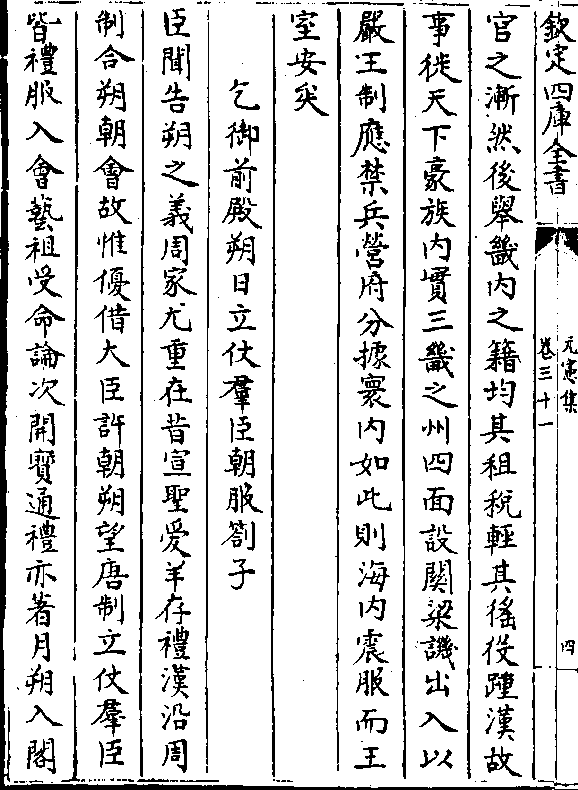 欽定四庫全書
元憲集
卷三十一
四
官之漸然後舉畿内之籍均其租稅輕其徭役踵漢故
事徙天下豪族内實三畿之州四面設關梁譏出入以
嚴王制應禁兵營府分據寰内如此則海内震服而王
室安矣
乞御前殿朔日立仗羣臣朝服劄子
臣聞告朔之義周家尤重在昔宣聖愛羊存禮漢沿周
制合朔朝會故惟優借大臣許朝朔望唐制立仗羣臣
皆禮服入會藝祖受命論次開寳通禮亦著月朔入閣